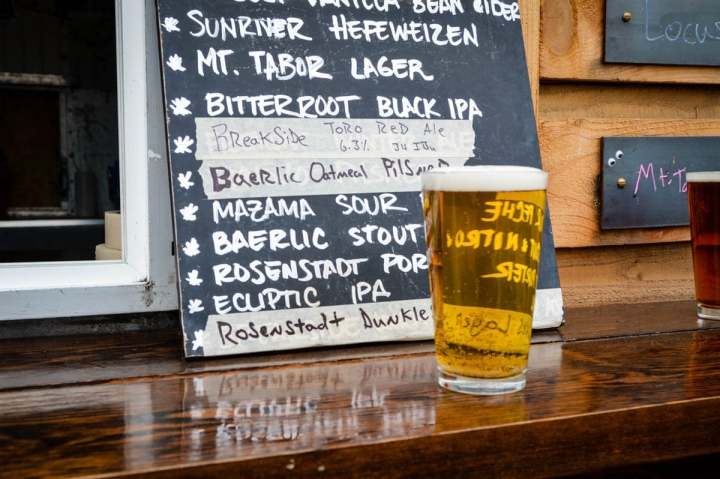 VANILLA BEAN CIDER
SUNRIVER HEFEWEIZEN
MT. TABOR LAGER
BITTERROOT BLACK IPA
BREAKSIDE TORO RED Ale
6.3% 34 IBU
Baerlic Oatmeal PilSner
MAZAMA SOUR
BAERLIC STOUT
ROSENSTADT POR
ECLIPTIC IPA
Rosenstadt Dunkle
Locus
Mt.Ta